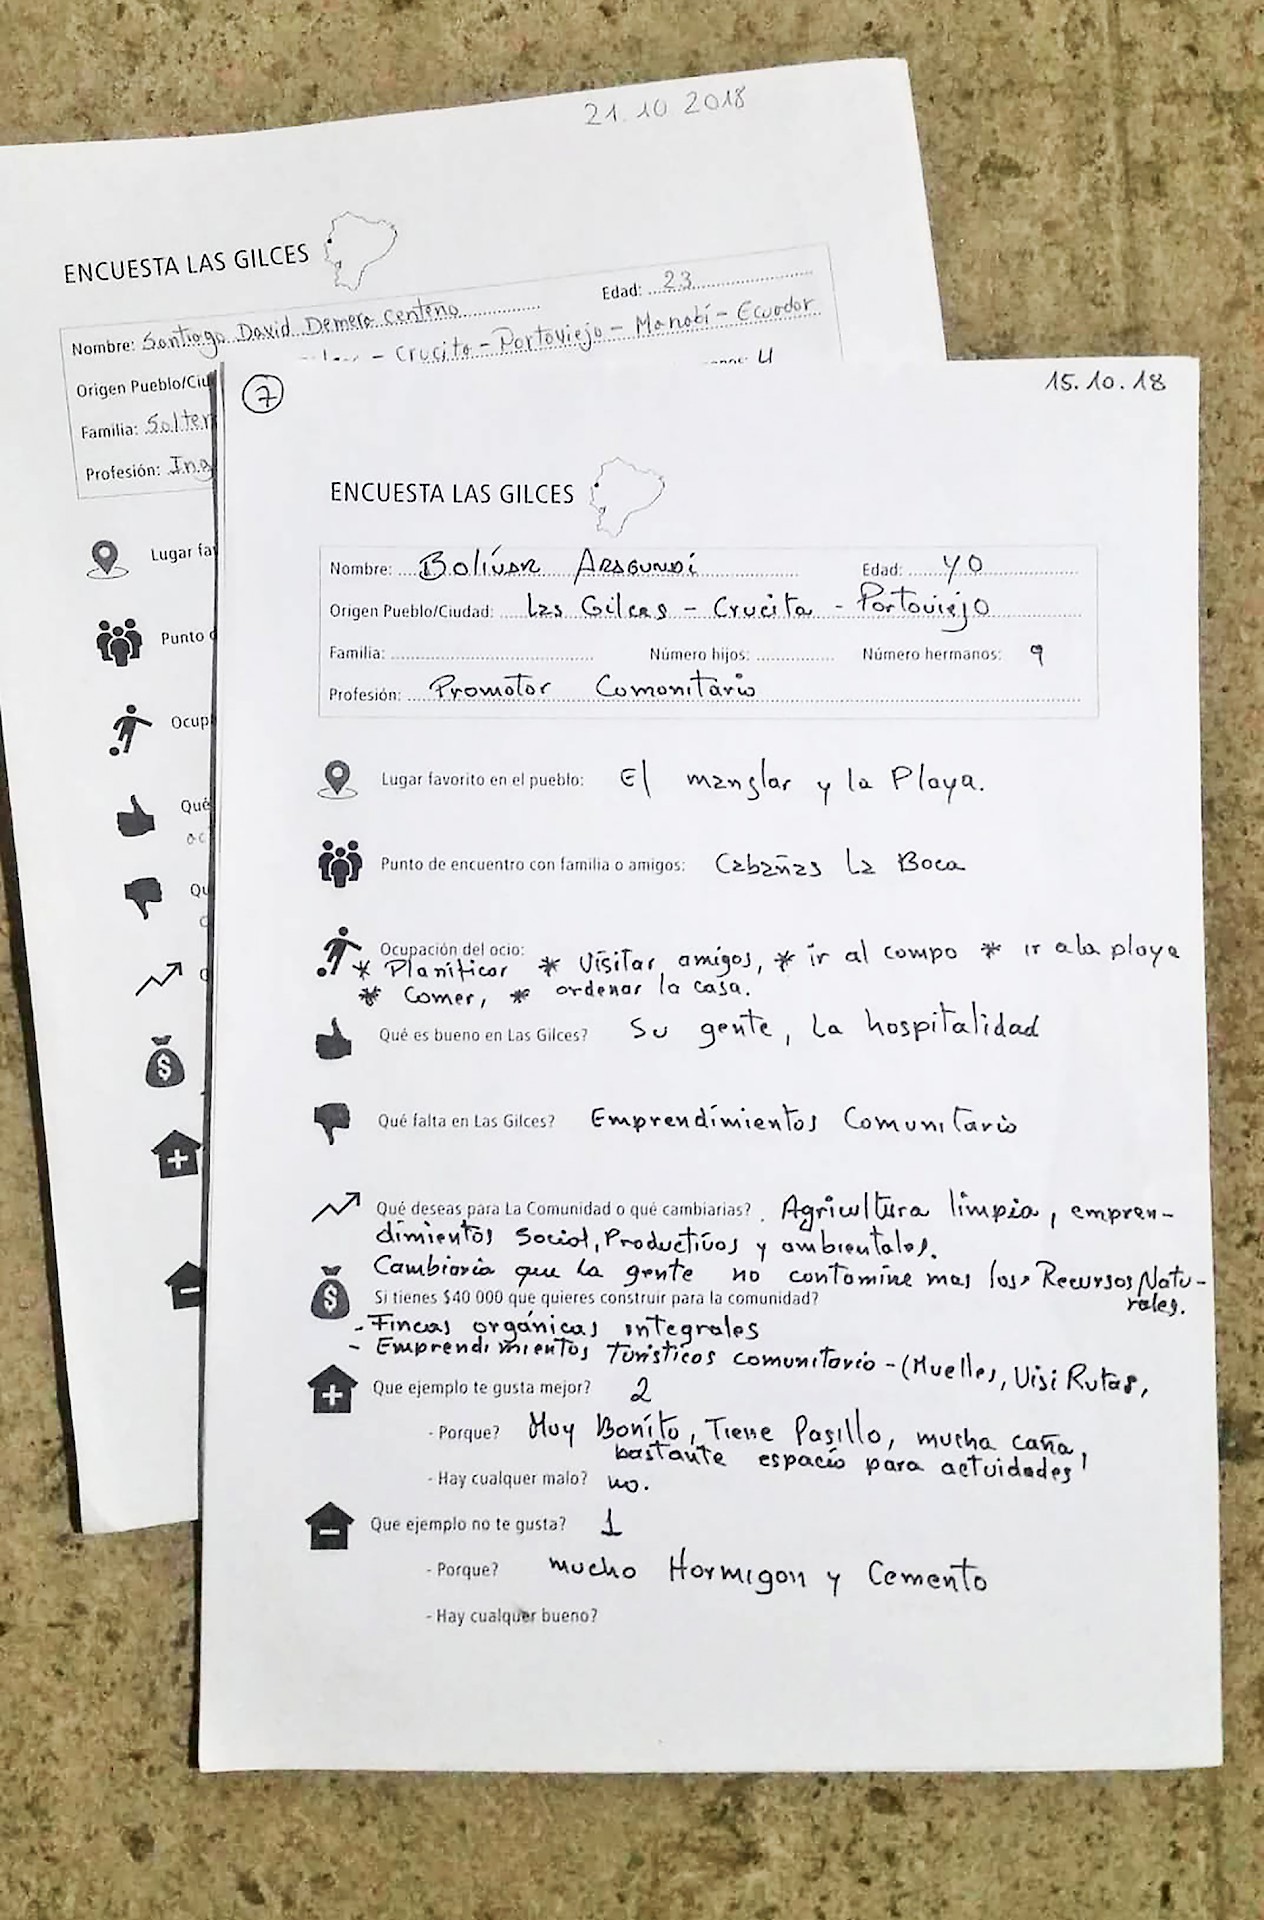 21.10 2018
ENCUESTA LAS GILCES
Nombre: Santiago David Demera Centeno Edad: 23
Origen Pueblo/Ciu - Crucita - Portoviejo - Manabí - Ecuador
Familia: Solter 4
Profesión: Ing
Lugar fa
Punto
Ocup
Qué
Qu
7
15.10.18
ENCUESTA LAS GILCES
Nombre: Bolívar Aragundi Edad: 40
Origen Pueblo/Ciudad: Las Gilces - Crucita - Portoviejo
Familia: Número hijos: Número hermanos: 9
Profesión: Promotor Comonitario
Lugar favorito en el pueblo: El manglar y la Playa.
Punto de encuentro con familia o amigos: Cabañas La Boca
Ocupación del ocio:
* Planificar * Visitar amigos, * ir al campo * ir a la playa
* Comer, * ordenar la casa.
Qué es bueno en Las Gilces? Su gente, La hospitalidad
Qué falta en Las Gilces? Emprendimientos Comunitario
Qué deseas para La Comunidad o qué cambiarias? Agricultura limpia, empren-
dimientos Social, Productivos y ambientales.
Cambiaria que la gente no contamine mas los Recursos Natu-
rales.
Si tienes $40 000 que quieres construir para la comunidad?
- Fincas orgánicas integrales
- Emprendimientos Turisticos comunitario - (Muelles, Visi Rutas,
Que ejemplo te gusta mejor? 2
- Porque? Muy Bonito, Tiene Pasillo, mucha caña,
bastante espacio para actuidades
- Hay cualquer malo? no.
Que ejemplo no te gusta? 1
- Porque? mucho Hormigon y Cemento
- Hay cualquer bueno?